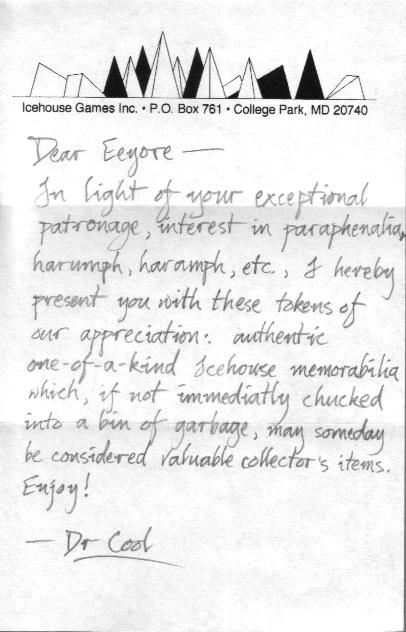 Icehouse Games Inc. • P.O. Box 761 • College Park, MD 20740
Dear Eeyore —
In light of your exceptional
patronage, interest in paraphenalia,
harumph, haramph, etc., I hereby
present you with these tokens of
our appreciation: authentic
one-of-a-kind Icehouse memorabilia
which, if not immediatly chucked
into a bin of garbage, may someday
be considered valuable collector's items.
Enjoy!
— Dr Cool